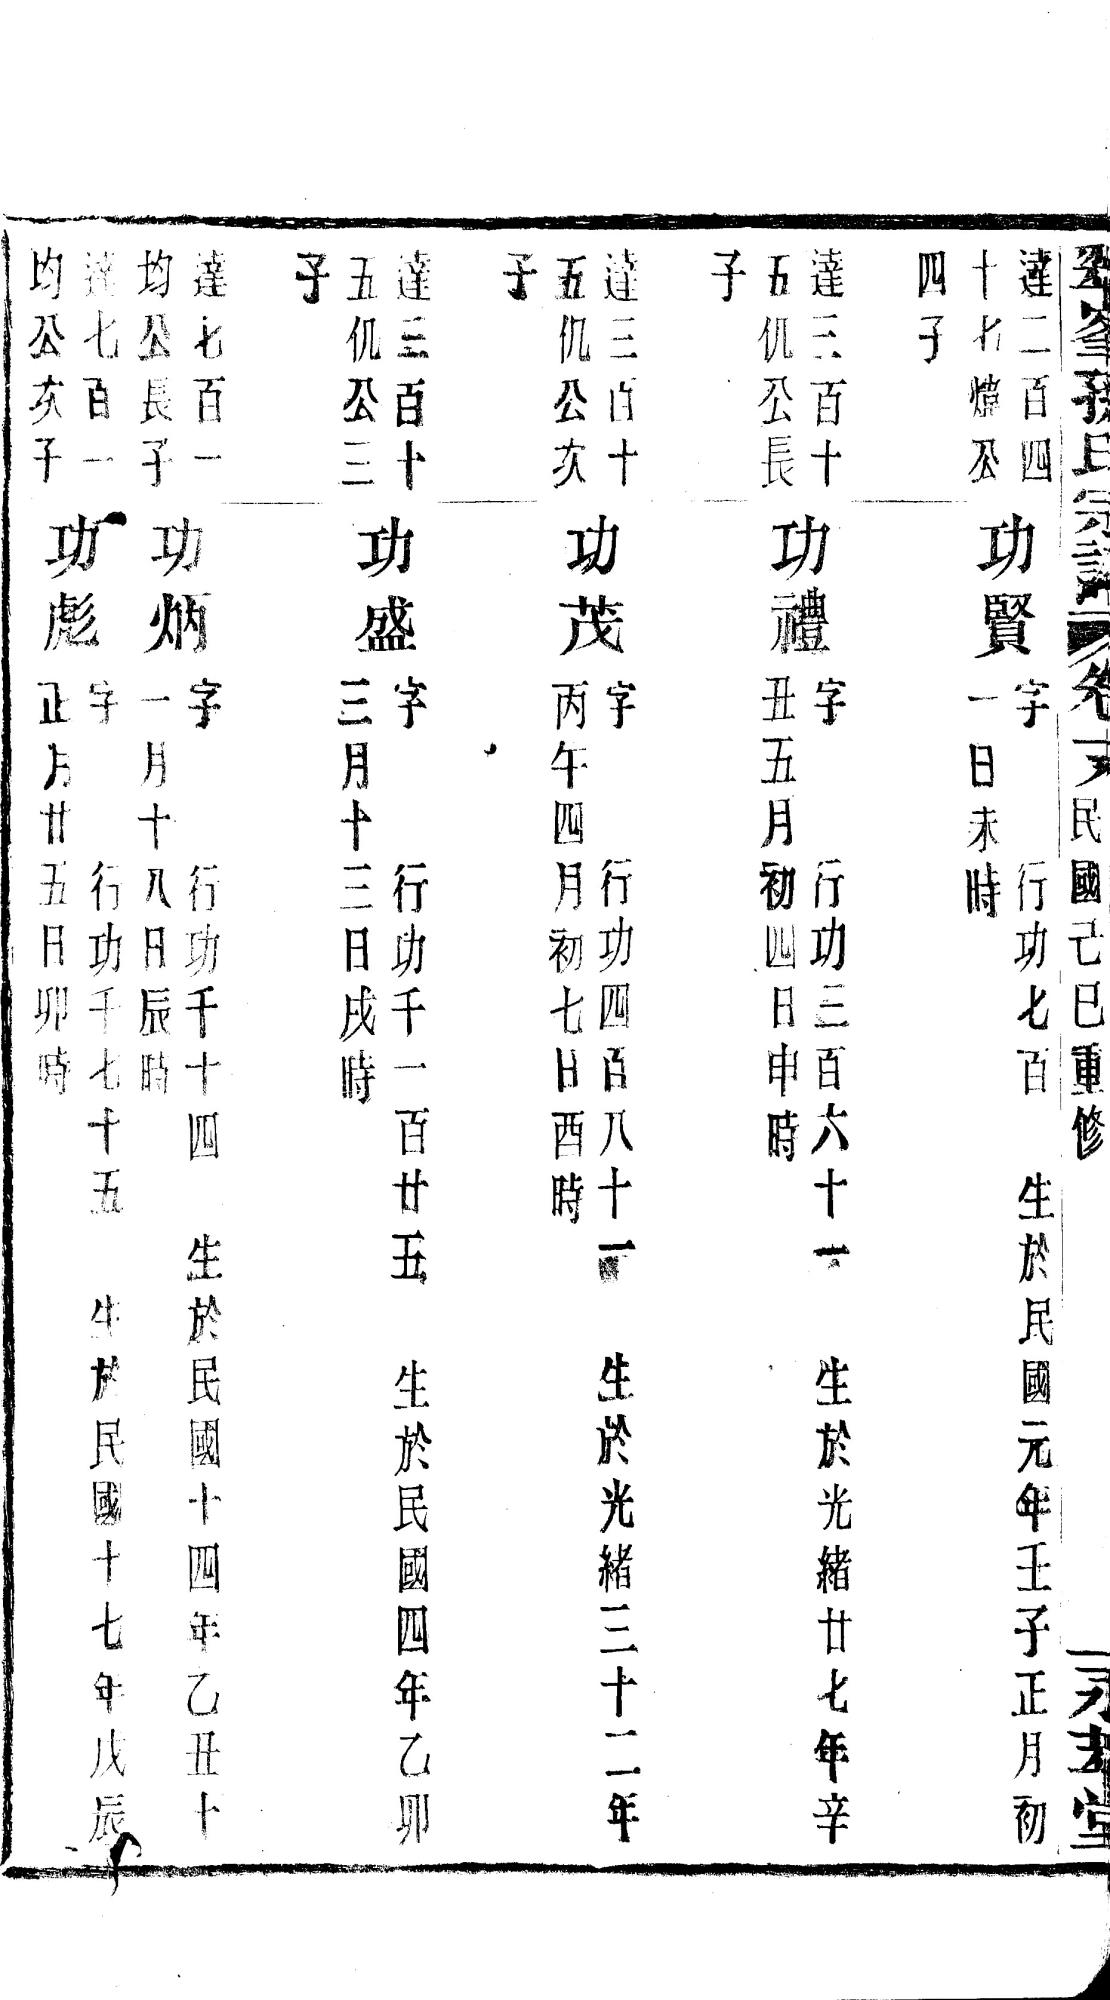 孫氏宗譜 卷 民國己巳重修 堂
達二百四
十七煒公
四子
功賢
字 行功七百 生於民國元年壬子正月初
一日未時
達三百十
五仉公長
子
功禮
字 行功三百六十一 生於光緒廿七年辛
丑五月初四日申時
達三百十
五仉公次
子
功茂
字 行功四百八十一 生於光緒三十二年
丙午四月初七日酉時
達三百十
五仉公三
子
功盛
字 行功千一百廿五 生於民國四年乙卯
三月十三日戌時
達七百一
均公長子
功炳
字 行功千十四 生於民國十四年乙丑十
一月十八日辰時
達七百一
均公次子
功彪
字 行功千七十五 生於民國十七年戊辰
正月廿五日卯時